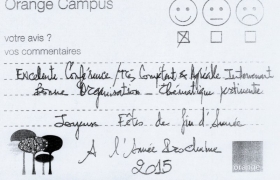 Orange Campus
votre avis ?
vos commentaires
Excellente Conférence / Très Compétent & Agréable Intervenant
Bonne Organisation - thématique pertinente
Joyeuses Fêtes de fin d'Année
A l'Année Prochaine
2015